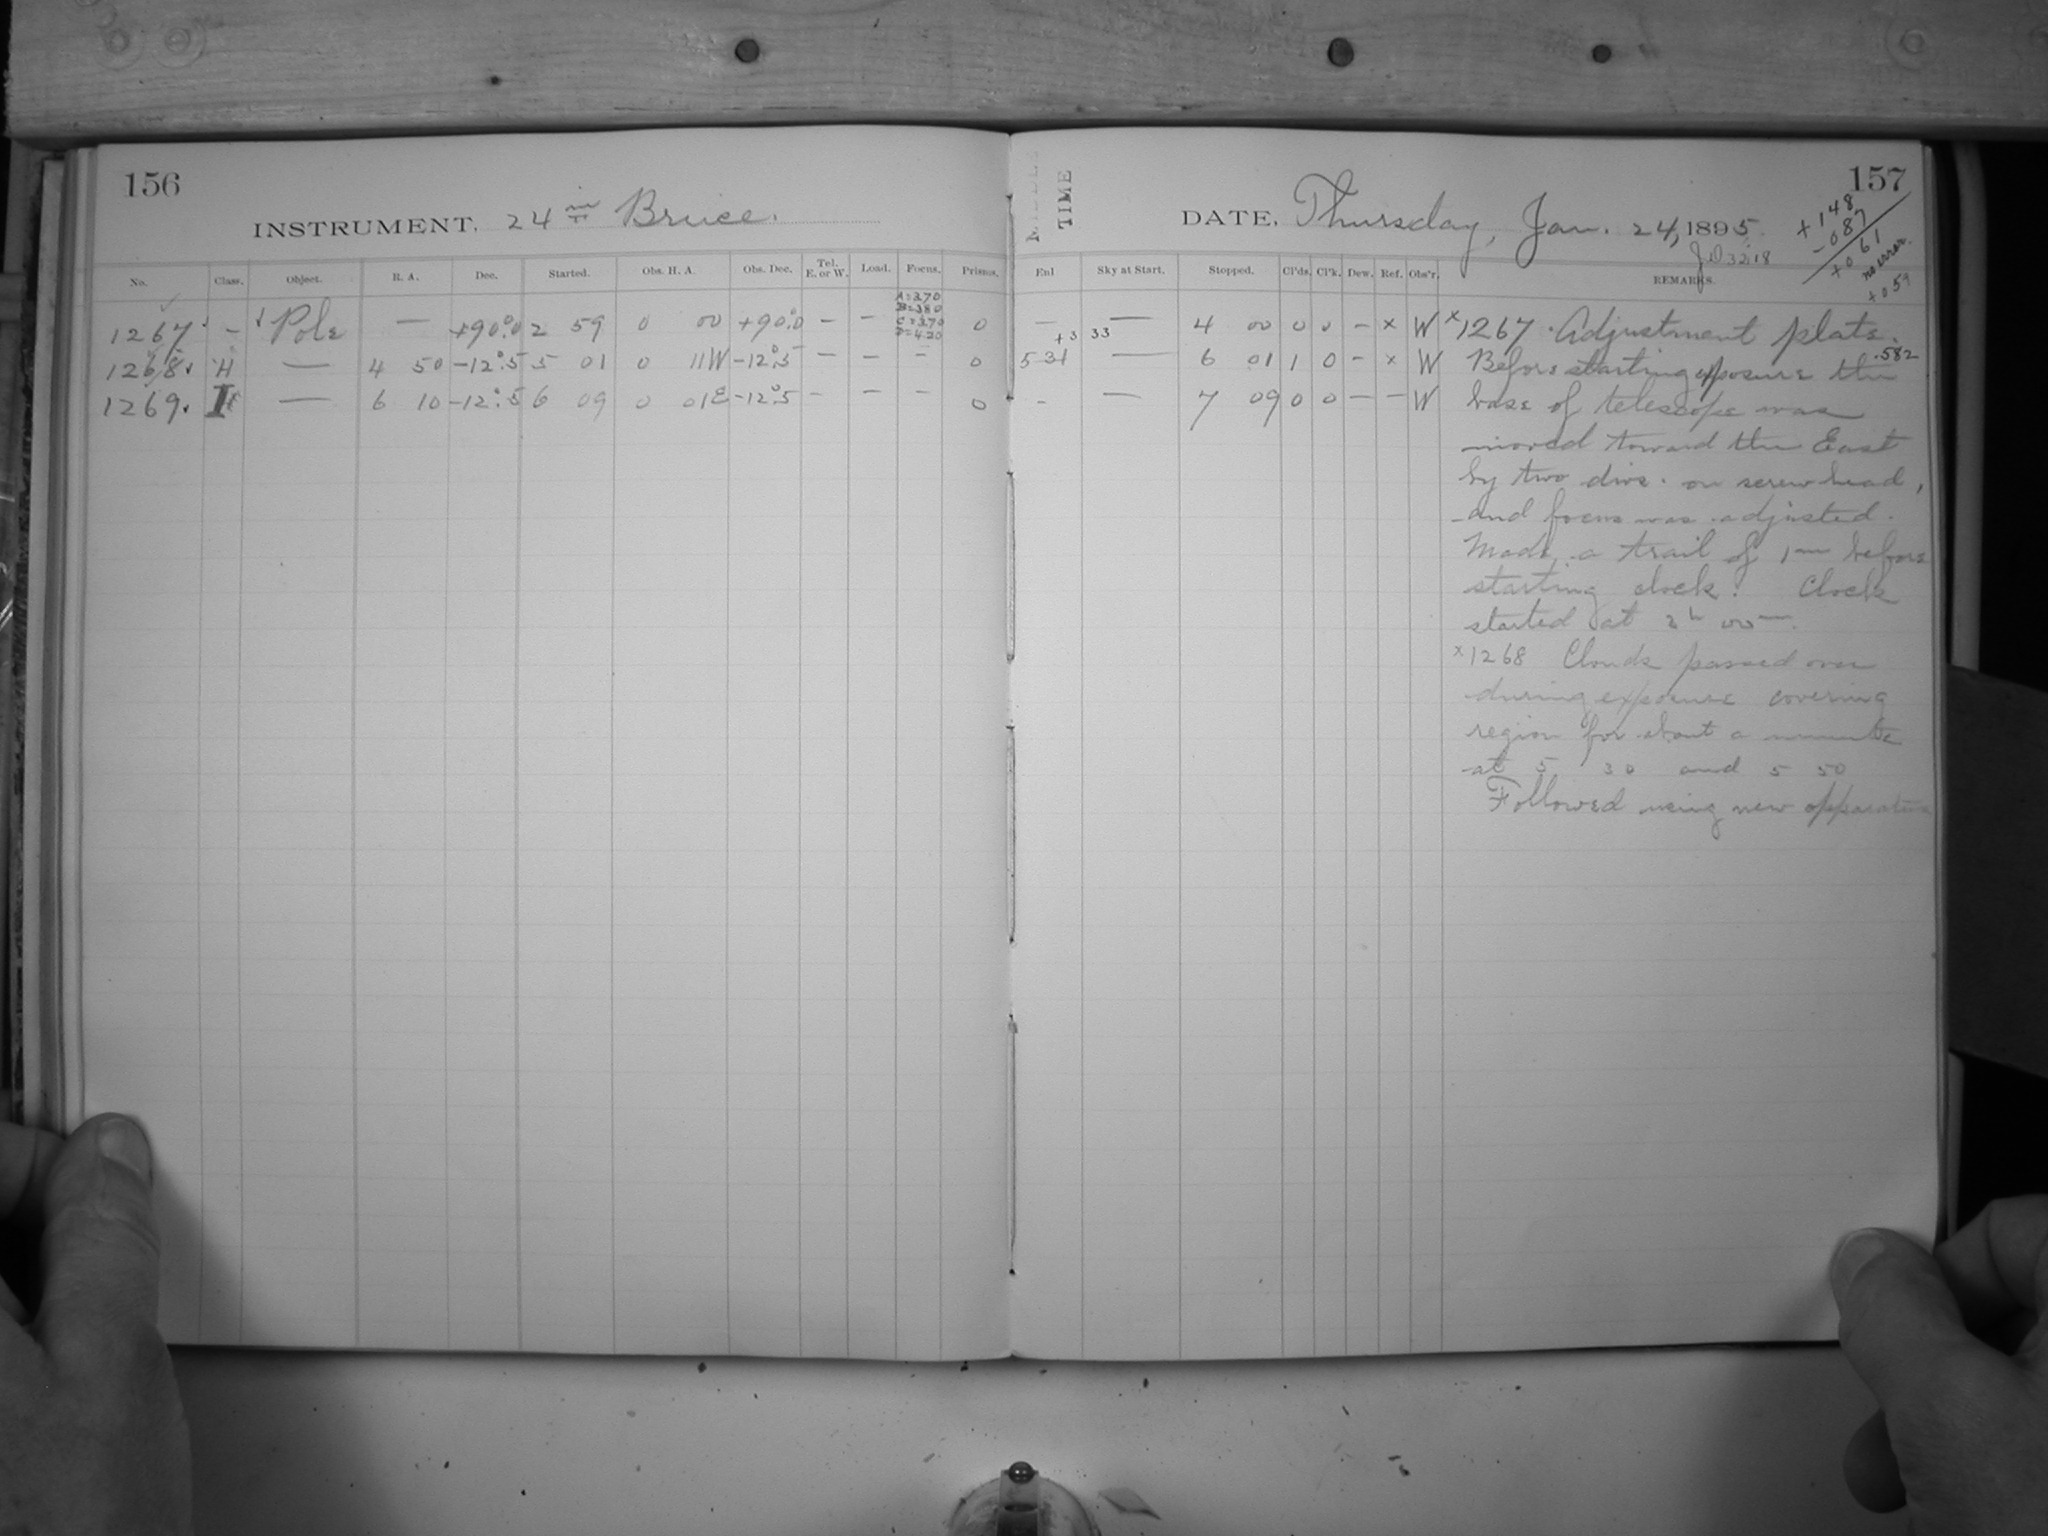 156
INSTRUMENT. 24 in Bruce.
No. Class. Object. R. A. Dec. Started. Obs. H. A. Obs. Dec. Tel. E. or W. Load. Focus. Prisms.
A=370
B=380
C=370
D=420
1267 – Pole — +90°.0 2 59 0 00 +90°.0 – – 0
1268 H — 4 50 –12°.5 5 01 0 11W –12°.5 – – – 0
1269. I — 6 10 –12°.5 6 09 0 01E –12°.5 – – – 0
TIME
157
DATE. Thursday, Jan. 24, 1895.
+148
–087
+061
no error.
+059
Exl Sky at Start. Stopped. Cl'ds. Cl'k. Dew. Ref. Obs'r. REMARKS.
— — 4 00 0 0 – x W
+3 33
531 — 6 01 1 0 – x W
- — 7 09 0 0 – – W
x1267. Adjustment plate.
Before starting exposure the .582
base of telescope was
moved toward the East
by two divs. on screw head,
and focus was adjusted.
Made a trail of 1m before
starting clock. Clock
started at 3h 00m.
x1268 Clouds passed over
during exposure covering
region for about a minute
at 5 30 and 5 50
Followed using new apparatus